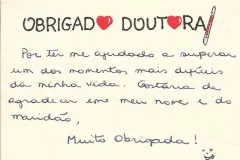 OBRIGADO DOUTORA!
Por ter me ajudado a superar
um dos momentos mais difíceis
da minha vida. Gostaria de
agradecer em meu nome e do
maridão,
Muito Obrigada!